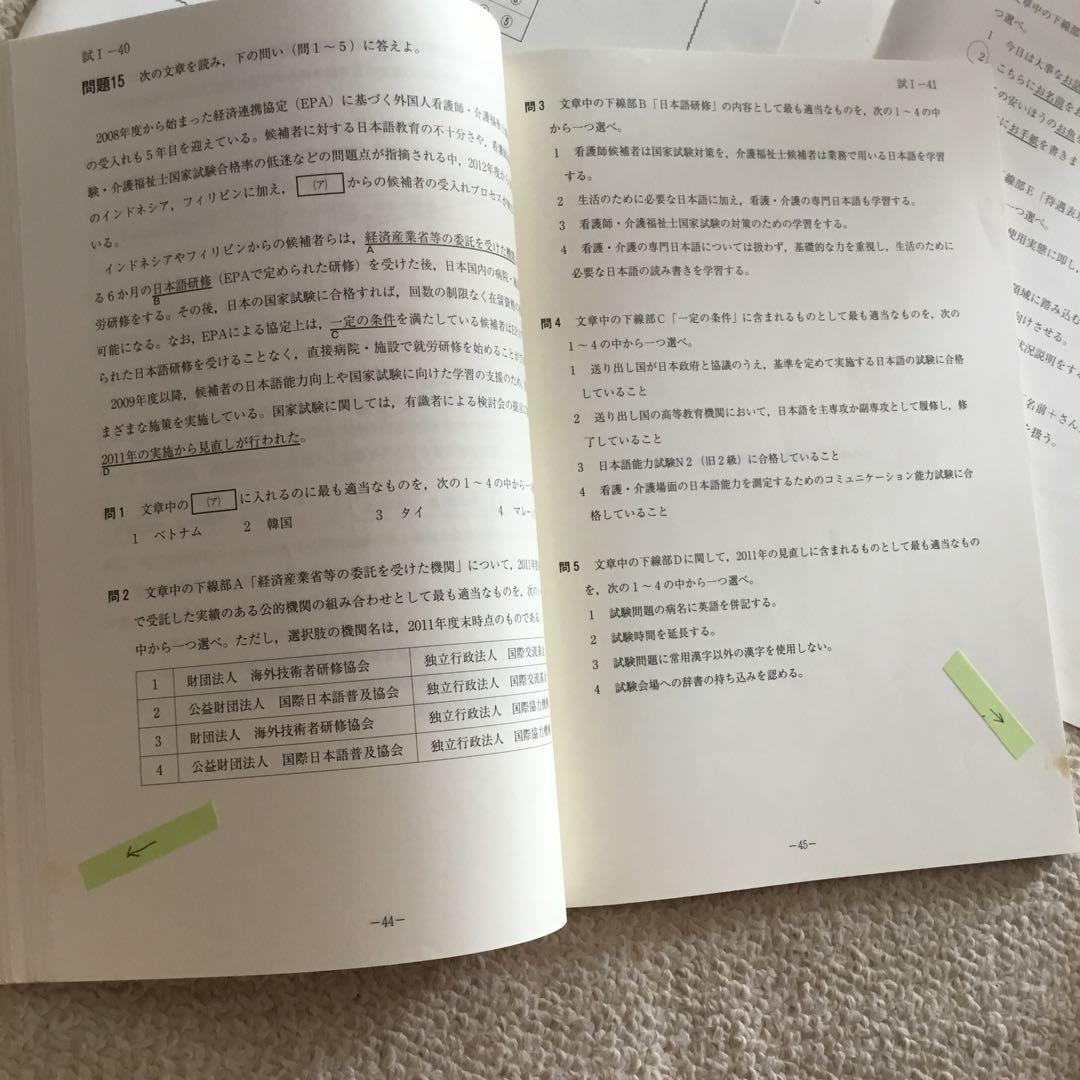 試Ⅰ－40
問題15 次の文章を読み，下の問い（問１～５）に答えよ。
2008年度から始まった経済連携協定（EPA）に基づく外国人看護師・介護福祉
の受入れも５年目を迎えている。候補者に対する日本語教育の不十分さや，看護
験・介護福祉士国家試験合格率の低迷などの問題点が指摘される中，2012年度
のインドネシア，フィリピンに加え，(ア)からの候補者の受入れプロセスが
いる。
インドネシアやフィリピンからの候補者らは，経済産業省等の委託を受けた機関
A
る６か月の日本語研修（EPAで定められた研修）を受けた後，日本国内の病院・
B
労研修をする。その後，日本の国家試験に合格すれば，回数の制限なく在留資格
可能になる。なお，EPAによる協定上は，一定の条件を満たしている候補者は
C
られた日本語研修を受けることなく，直接病院・施設で就労研修を始めることが
2009年度以降，候補者の日本語能力向上や国家試験に向けた学習の支援のため
まざまな施策を実施している。国家試験に関しては，有識者による検討会の
2011年の実施から見直しが行われた。
D
問１ 文章中の(ア)に入れるのに最も適当なものを，次の１～４の中から
１ ベトナム ２ 韓国 ３ タイ ４ マレー
問２ 文章中の下線部A「経済産業省等の委託を受けた機関」について，2011
で受託した実績のある公的機関の組み合わせとして最も適当なものを，次の
中から一つ選べ。ただし，選択肢の機関名は，2011年度末時点のものである
1 財団法人 海外技術者研修協会 独立行政法人 国際交流基
2 公益財団法人 国際日本語普及協会 独立行政法人 国際交流基
3 財団法人 海外技術者研修協会 独立行政法人 国際協力機
4 公益財団法人 国際日本語普及協会 独立行政法人 国際協力機
←
－44－
試Ⅰ－41
問３ 文章中の下線部B「日本語研修」の内容として最も適当なものを，次の１～４の中
から一つ選べ。
１ 看護師候補者は国家試験対策を，介護福祉士候補者は業務で用いる日本語を学習
する。
２ 生活のために必要な日本語に加え，看護・介護の専門日本語も学習する。
３ 看護師・介護福祉士国家試験の対策のための学習をする。
４ 看護・介護の専門日本語については扱わず，基礎的な力を重視し，生活のために
必要な日本語の読み書きを学習する。
問４ 文章中の下線部C「一定の条件」に含まれるものとして最も適当なものを，次の
１～４の中から一つ選べ。
１ 送り出し国が日本政府と協議のうえ，基準を定めて実施する日本語の試験に合格
していること
２ 送り出し国の高等教育機関において，日本語を主専攻か副専攻として履修し，修
了していること
３ 日本語能力試験N２（旧２級）に合格していること
４ 看護・介護場面の日本語能力を測定するためのコミュニケーション能力試験に合
格していること
問５ 文章中の下線部Dに関して，2011年の見直しに含まれるものとして最も適当なもの
を，次の１～４の中から一つ選べ。
１ 試験問題の病名に英語を併記する。
２ 試験時間を延長する。
３ 試験問題に常用漢字以外の漢字を使用しない。
４ 試験会場への辞書の持ち込みを認める。
→
－45－
文章中の下線部
つ選べ。
１ 今日は大事なお
２ こちらにお名前を
の安いほうのお魚
にお手紙を書きま
線部E「待遇表
一つ選べ。
使用実態に即し，
領域に踏み込む
向けさせる。
状況説明をする
名前＋さん
扱う。
⑤